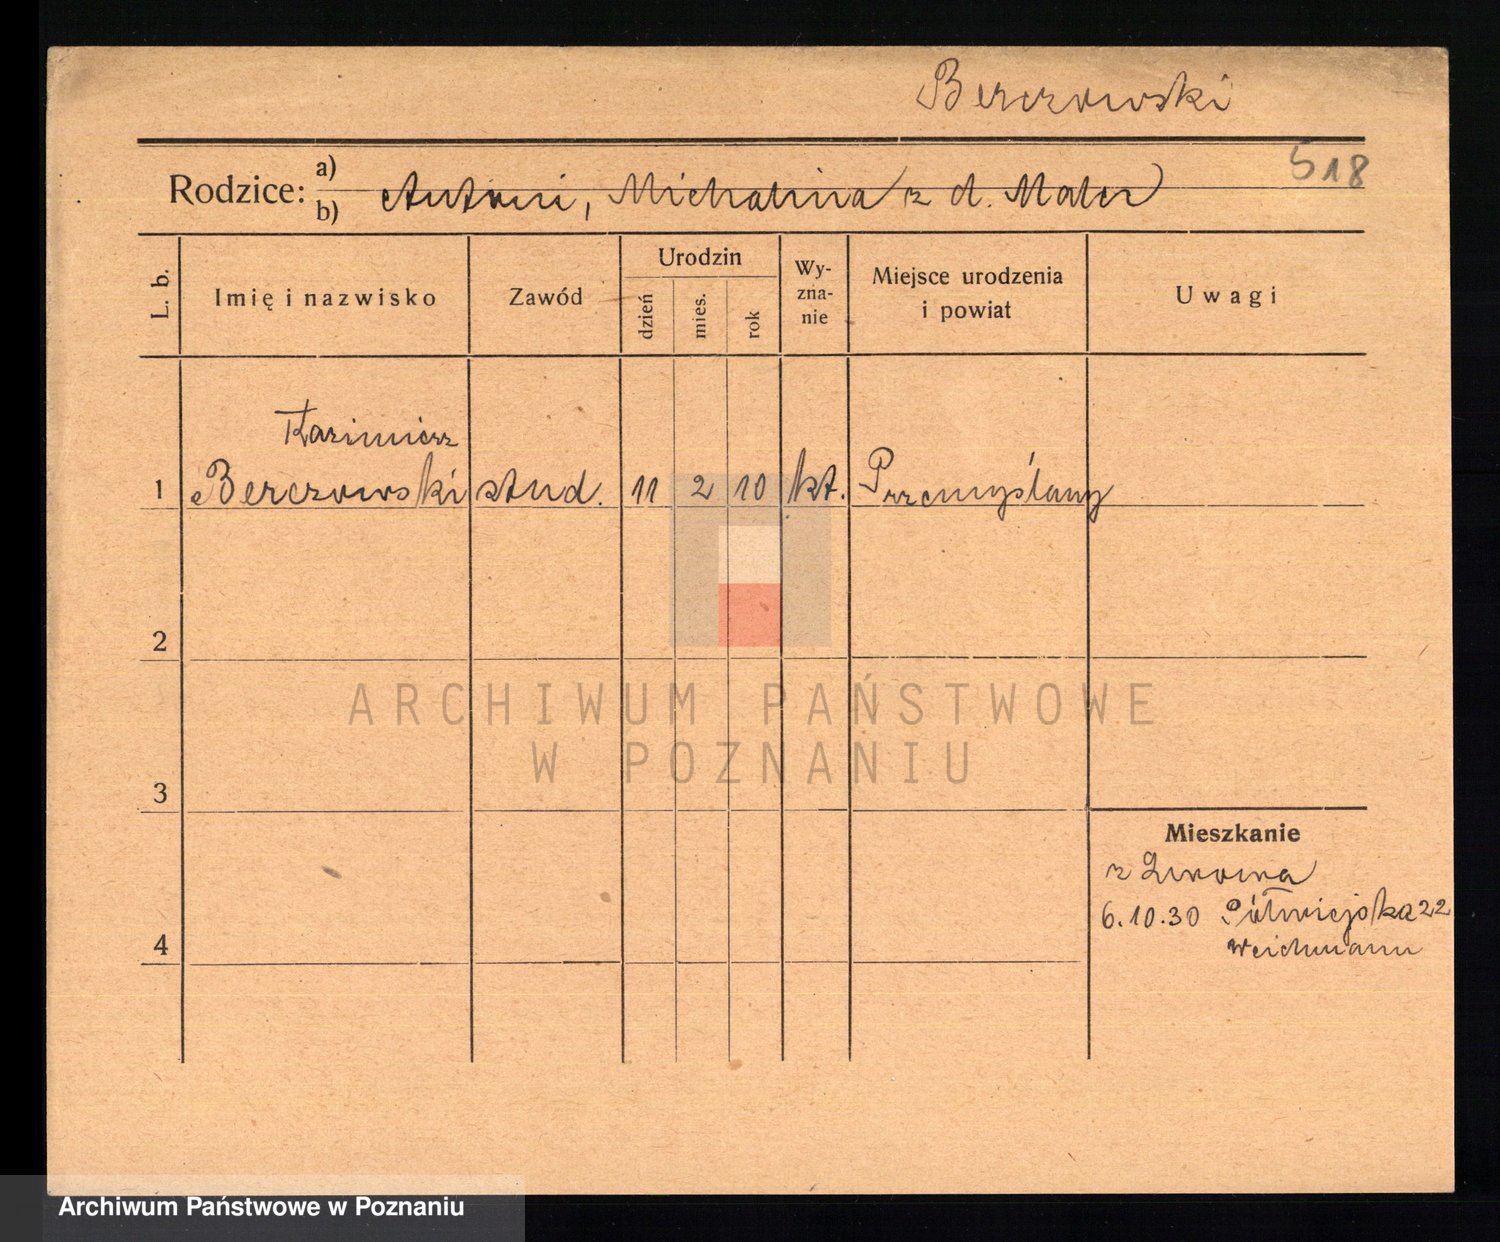 Berezowski
518
Rodzice: a)
b) Antoni, Michalina z d. Maler
L. b.
Imię i nazwisko
Zawód
Urodzin
dzień
mies.
rok
Wy-
zna-
nie
Miejsce urodzenia
i powiat
Uwagi
Kazimierz
1 Berezowski stud. 11 2 10 kt. Przemyślany
2
ARCHIWUM PAŃSTWOWE
W POZNANIU
3
Mieszkanie
z Lwowa
6.10.30 Półwiejska 22
Weichmann
4
Archiwum Państwowe w Poznaniu